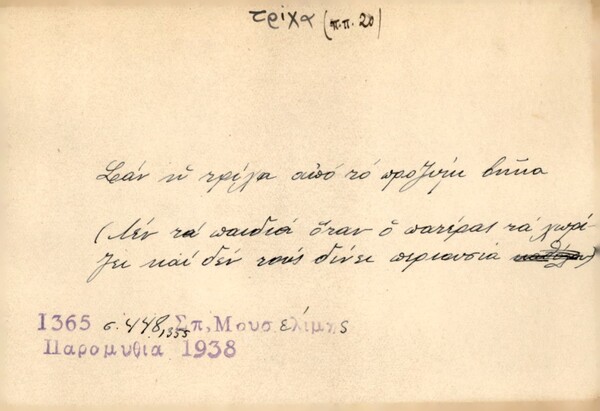 τρίχα (π.π. 20)
Σὰν ἡ τρίχα ἀπὸ τὸ προζύμι βγῆκα
(Λέν τὰ παιδιὰ ὅταν ὁ πατέρας τὰ χωρί-
ζει καὶ δὲν τοὺς δίνει περιουσία)
1365 σ. 448, 1355 Σπ, Μουσελίμης
Παρομυθία 1938